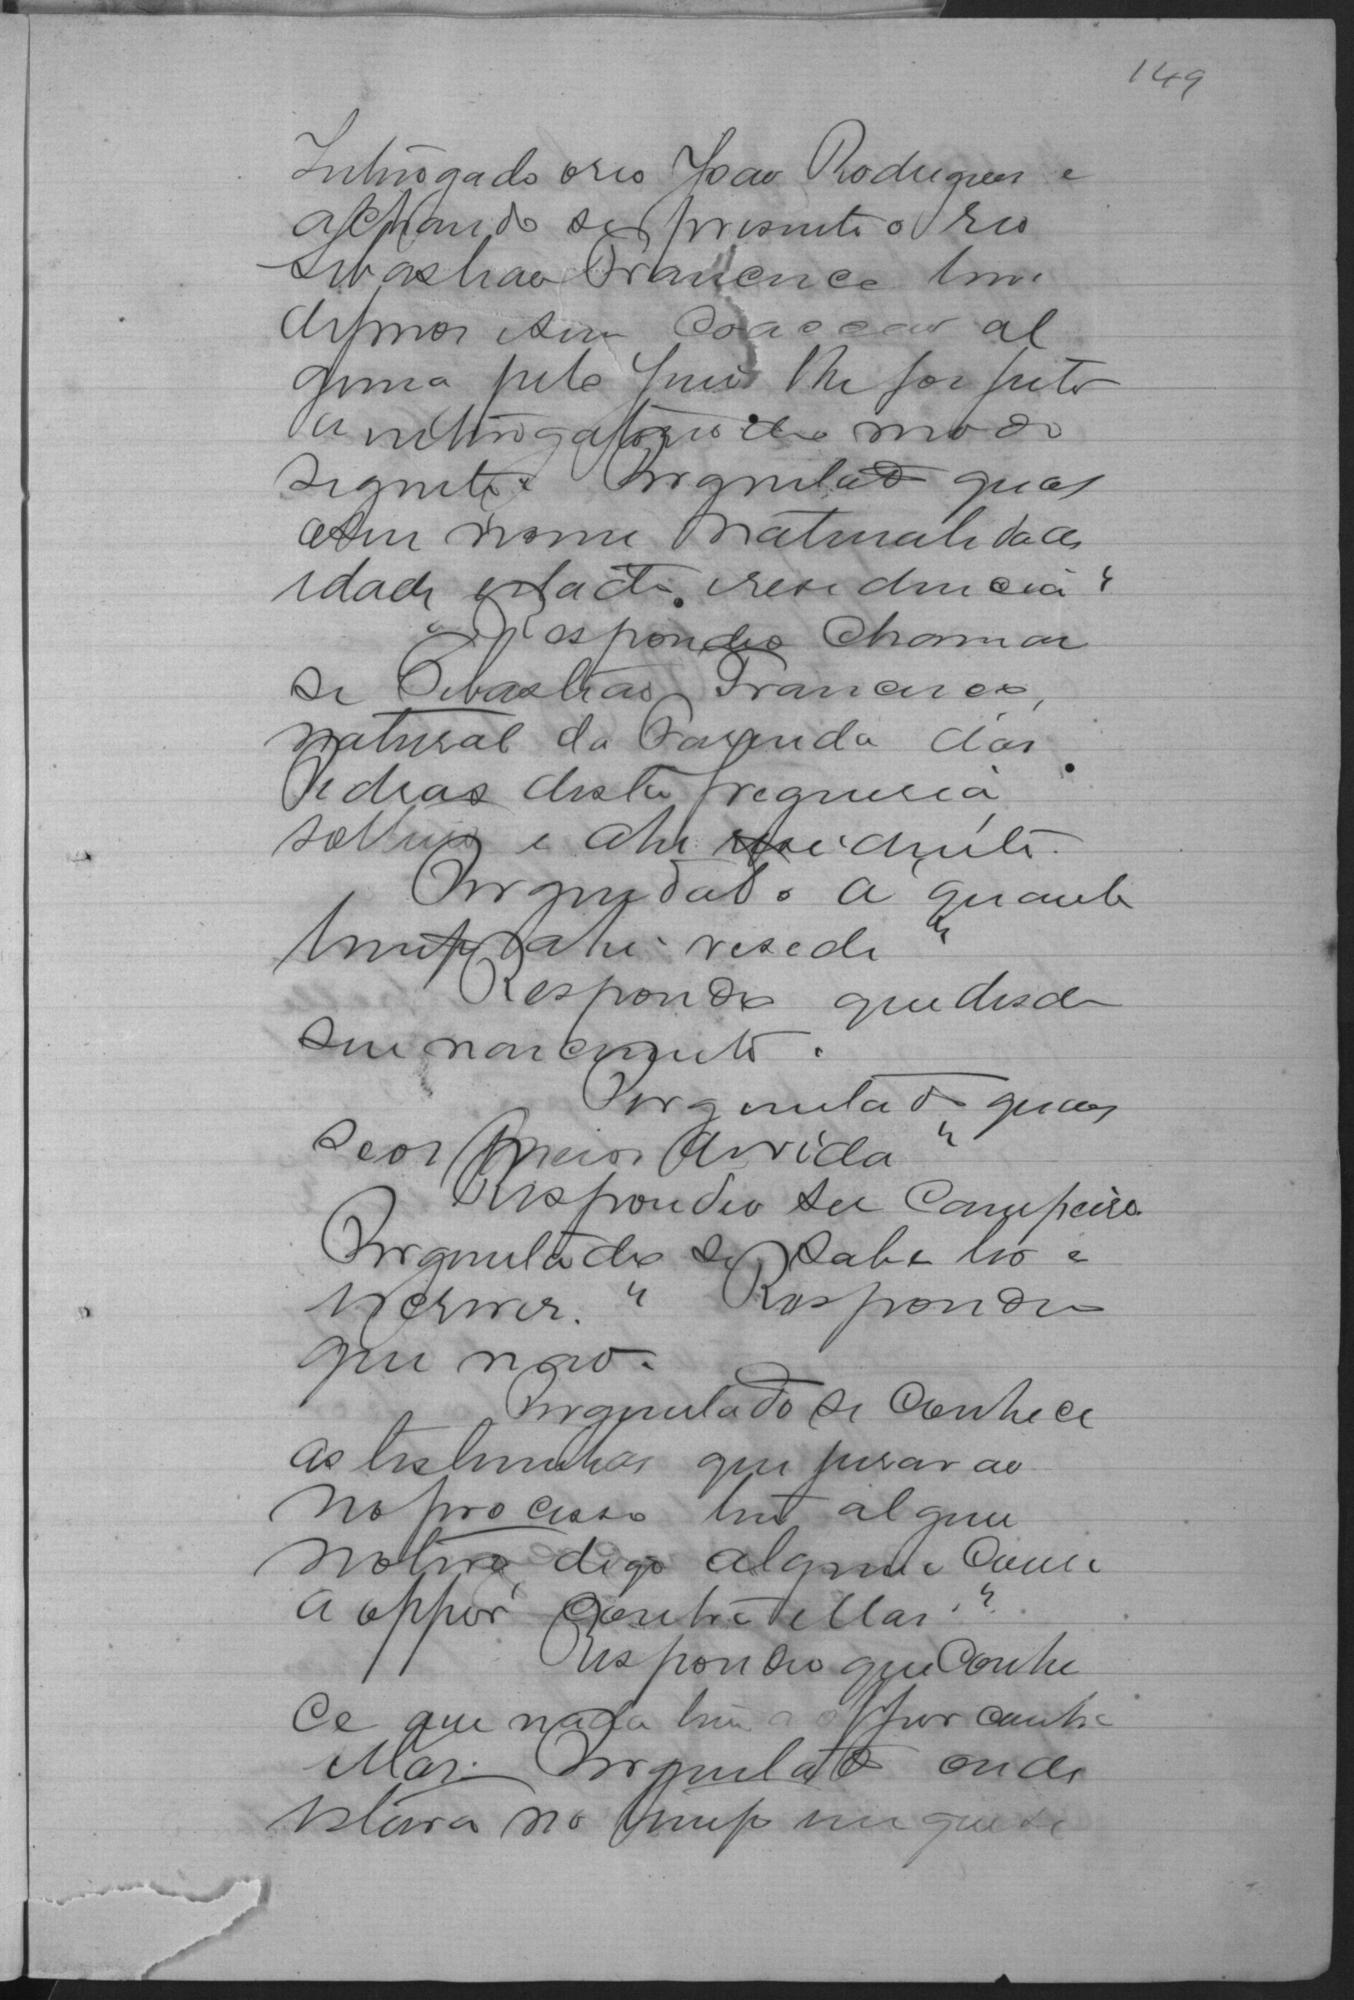 149
Interrogado o reo Joao Rodrigues e
achando se presente o reo
Sebastiao Francisco livre
de ferros e sem coaccao al
guma pelo Juiz lhe foi feito
o interrogatorio do modo
seguinte Perguntado qual
o seu nome naturalidade
idade estado e residencia?
Respondeo chamar
se Sebastiao Francisco,
natural da Fazenda das
Pedras desta freguesia
solteiro e ahi residente.
Perguntado a quanto
tempo ahi reside?
Respondeo que desde
seu nascimento.
Perguntado quaes
seos meios de vida?
Respondeo ser Campeiro
Perguntado se sabe ler e
escrever? Respondeo
que nao.
Perguntado se conhece
as testimunhas que jurarao
no processo tem algum
motivo, digo alguma cousa
a oppôr contra ellas?
Respondeo que conhe
ce que nada tem a oppor contra
ellas. Perguntado onde
estava no tempo em que se